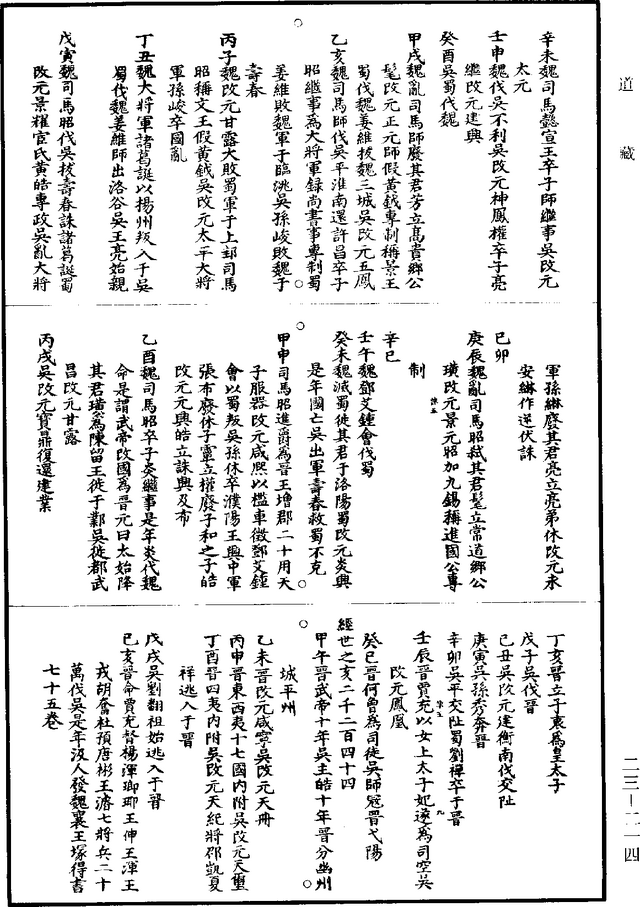 道藏
辛未魏司馬懿宣王卒子師繼事吳改元
太元
壬申魏伐吳不利吳改元神鳳權卒子亮
繼改元建興
癸酉吳蜀伐魏
甲戌魏亂司馬師廢其君芳立高貴鄉公
髦改元正元師假黃鉞專制稱景王
蜀伐魏姜維拔魏三城吳改元五鳳
乙亥魏司馬師伐吳平淮南還許昌卒子
昭繼事為大將軍錄尚書事專制蜀
姜維敗魏軍于臨洮吳孫峻敗魏于
壽春
丙子魏改元甘露大敗蜀軍于上邽司馬
昭稱文王假黃鉞吳改元太平大將
軍孫峻卒國亂
丁丑魏大將軍諸葛誕以揚州叛入于吳
蜀伐魏姜維師出洛谷吳王亮始親
戊寅魏司馬昭伐吳拔壽春誅諸葛誕蜀
改元景耀宦氏黃皓專政吳亂大將
軍孫綝廢其君亮立亮弟休改元永
安綝作逆伏誅
己卯
庚辰魏亂司馬昭弒其君髦立常道鄉公
璜改元景元昭加九錫稱進國公專
制
辛巳
壬午魏鄧艾鍾會伐蜀
癸未魏滅蜀徙其君于洛陽蜀改元炎興
是年國亡吳出軍壽春救蜀不克
甲申司馬昭進爵為晉王增郡二十用天
子服器改元咸熙以檻車徵鄧艾鍾
會以蜀叛吳孫休卒濮陽王興中軍
張布廢休子𩅦立權廢子和之子皓
改元元興皓立誅興及布
乙酉魏司馬昭卒子炎繼事是年炎代魏
命是謂武帝改國為晉元曰太始降
其君璜為陳留王徙于鄴吳徙都武
昌改元甘露
丙戌吳改元寶鼎復還建業
丁亥晉立子衷為皇太子
戊子吳伐晉
己丑吳改元建衡南伐交阯
庚寅吳孫秀奔晉
辛卯吳平交阯蜀劉禪卒于晉
壬辰晉賈充以女上太子妃遂為司空吳
改元鳳凰
癸巳晉何曾為司徒吳師寇晉弋陽
經世之亥二千二百四十四
甲午晉武帝十年吳主皓十年晉分幽州
城平州
乙未晉改元咸寧吳改元天冊
丙申晉東西夷十七國內附吳改元天璽
丁酉晉四夷內附吳改元天紀將邵凱夏
祥逃入于晉
戊戌吳劉翻祖始逃入于晉
己亥晉命賈充督楊渾瑯琊王伷王渾王
戎胡奮杜預唐彬王濬七將兵二十
萬伐吳是年汲人發魏襄王塚得書
七十五卷
二三—二一四